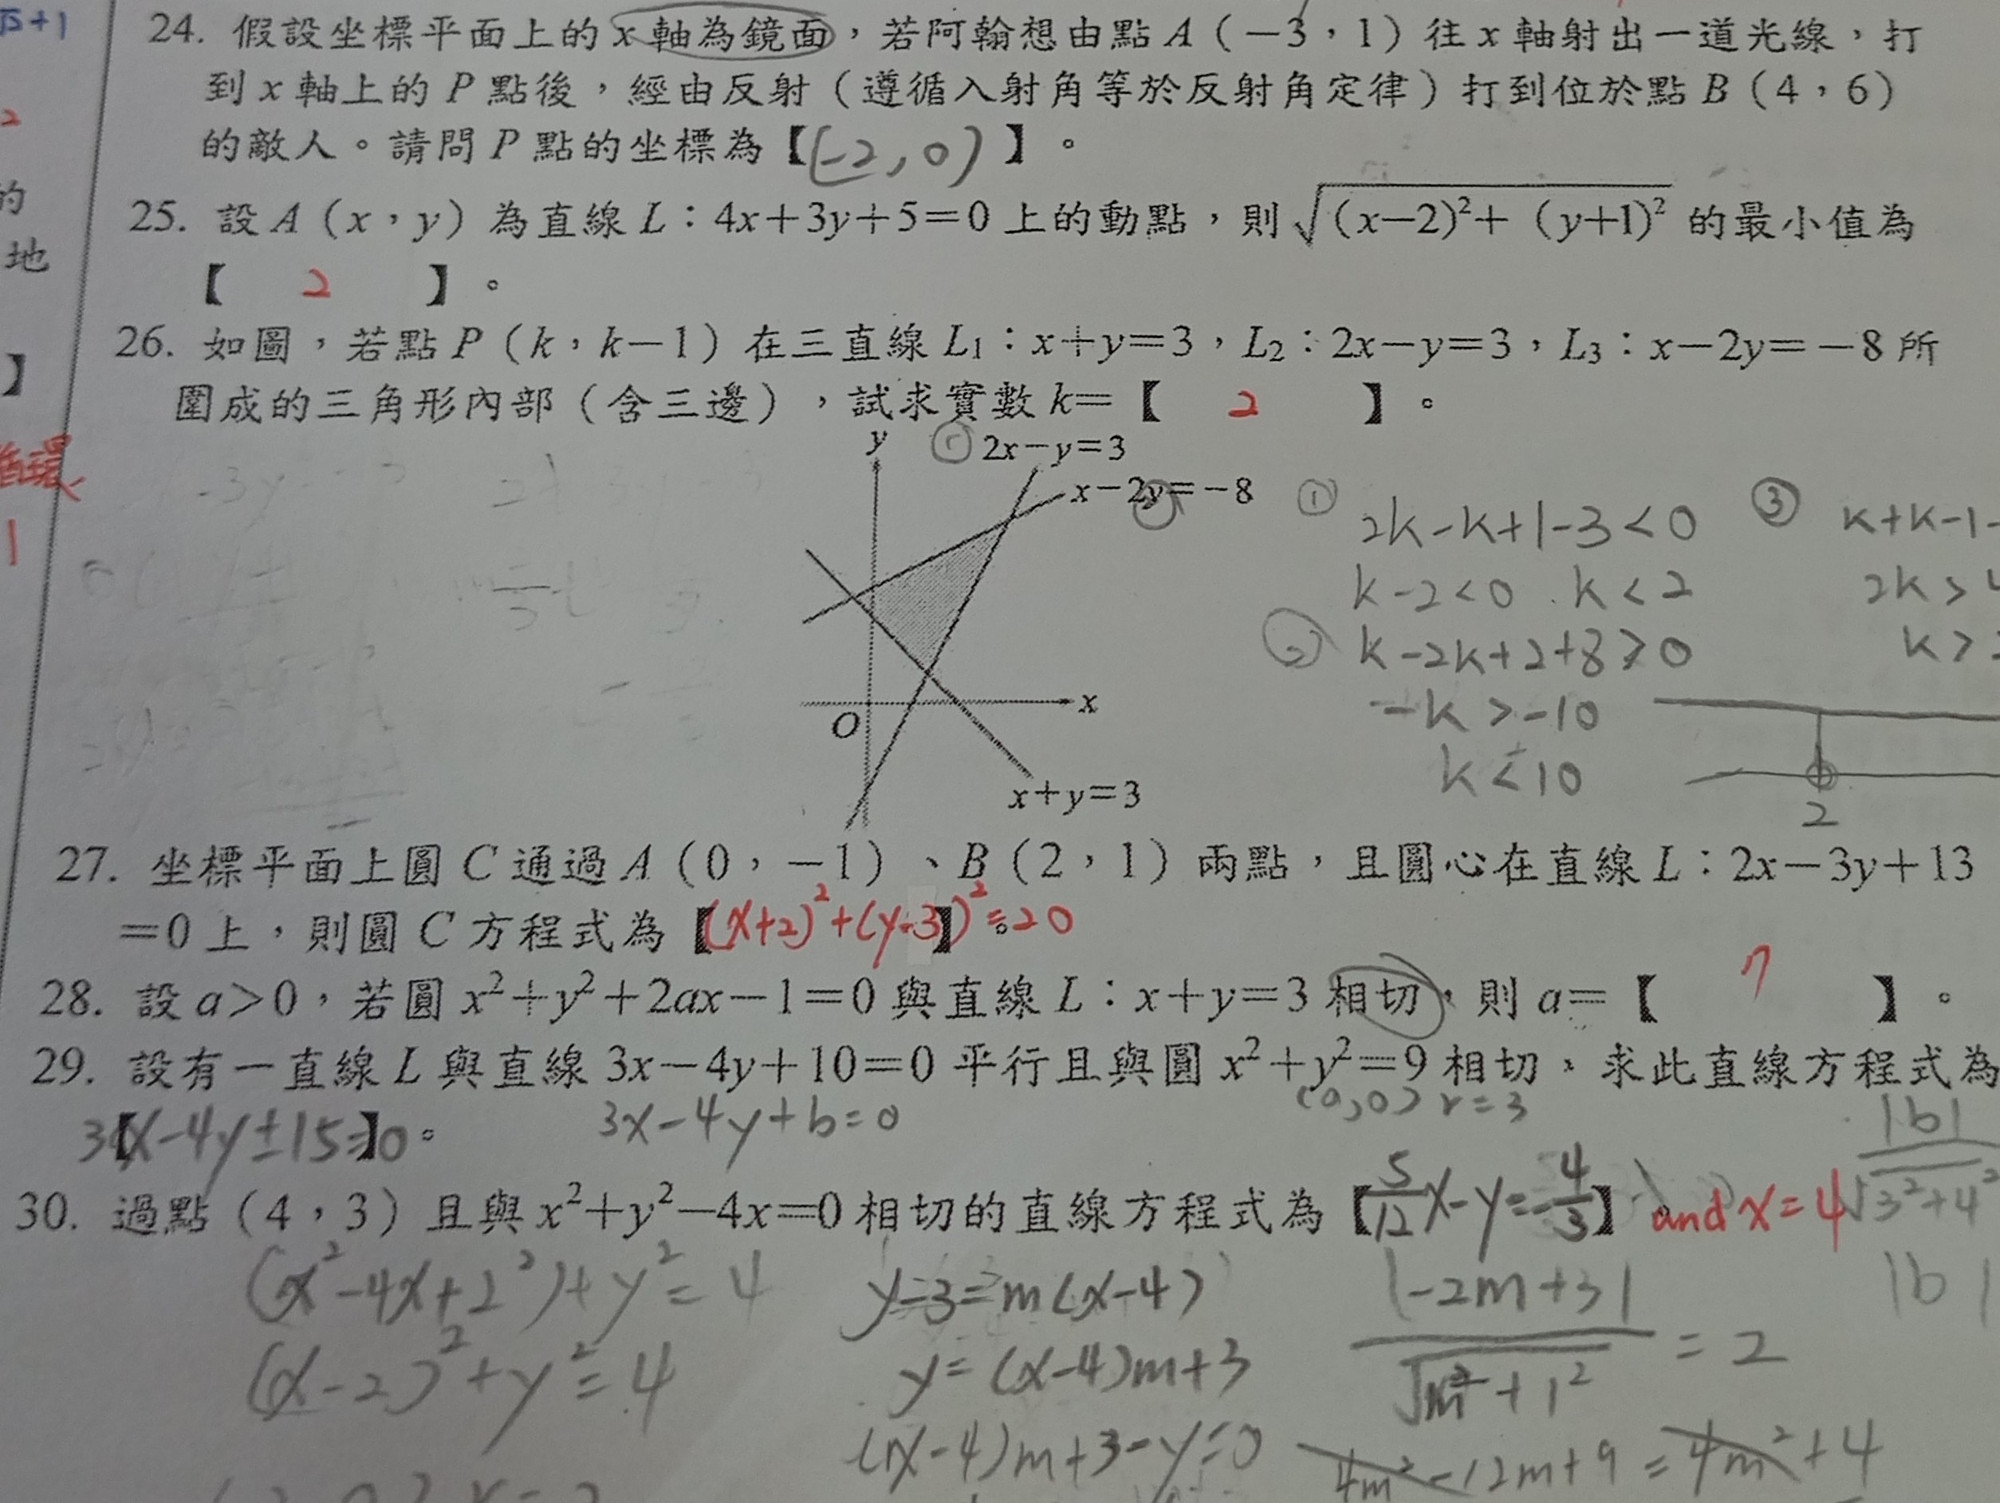 √3+1
24. 假設坐標平面上的 x 軸為鏡面，若阿翰想由點 A（－3，1）往 x 軸射出一道光線，打
到 x 軸上的 P 點後，經由反射（遵循入射角等於反射角定律）打到位於點 B（4，6）
2
的敵人。請問 P 點的坐標為【(-2,0)】。
的
25. 設 A（x，y）為直線 L：4x＋3y＋5＝0 上的動點，則 √(x－2)²＋（y＋1)² 的最小值為
地
【 2 】。
26. 如圖，若點 P（k，k－1）在三直線 L₁：x＋y＝3，L₂：2x－y＝3，L₃：x－2y＝－8 所
】
圍成的三角形內部（含三邊），試求實數 k＝【 2 】。
循環
1
y ① 2x－y＝3
x－2y＝－8
① 2k-k+1-3<0 ③ k+k-1-
k-2<0 k<2 2k>4
② k-2k+2+8>0 k>
-k>-10
k<10
2
O x
x＋y＝3
27. 坐標平面上圓 C 通過 A（0，－1）、B（2，1）兩點，且圓心在直線 L：2x－3y＋13
＝0 上，則圓 C 方程式為【(x+2)²+(y-3)²=20】。
28. 設 a＞0，若圓 x²＋y²＋2ax－1＝0 與直線 L：x＋y＝3 相切，則 a＝【 7 】。
29. 設有一直線 L 與直線 3x－4y＋10＝0 平行且與圓 x²＋y²＝9 相切，求此直線方程式為
【3x-4y±15=0】。 3x-4y+b=0 (0,0) r=3 |b|
√3²+4²
30. 過點（4，3）且與 x²＋y²－4x＝0 相切的直線方程式為【5/12x-y=-4/3】 and x=4
|b|
(x²-4x+2²)+y²=4 y-3=m(x-4) |-2m+3|/√m²+1² = 2
(x-2)²+y²=4 y=(x-4)m+3
(x-4)m+3-y=0 4m²-12m+9=4m²+4